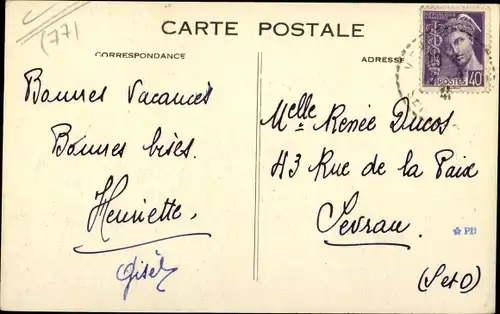 (77)
CARTE POSTALE
CORRESPONDANCE
ADRESSE
POSTES 40
Bonnes Vacances
Bonnes bises.
Henriette,
Gisèl
Melle Renée Ducos
43 Rue de la Paix
Sevran.
(S et O)
PB